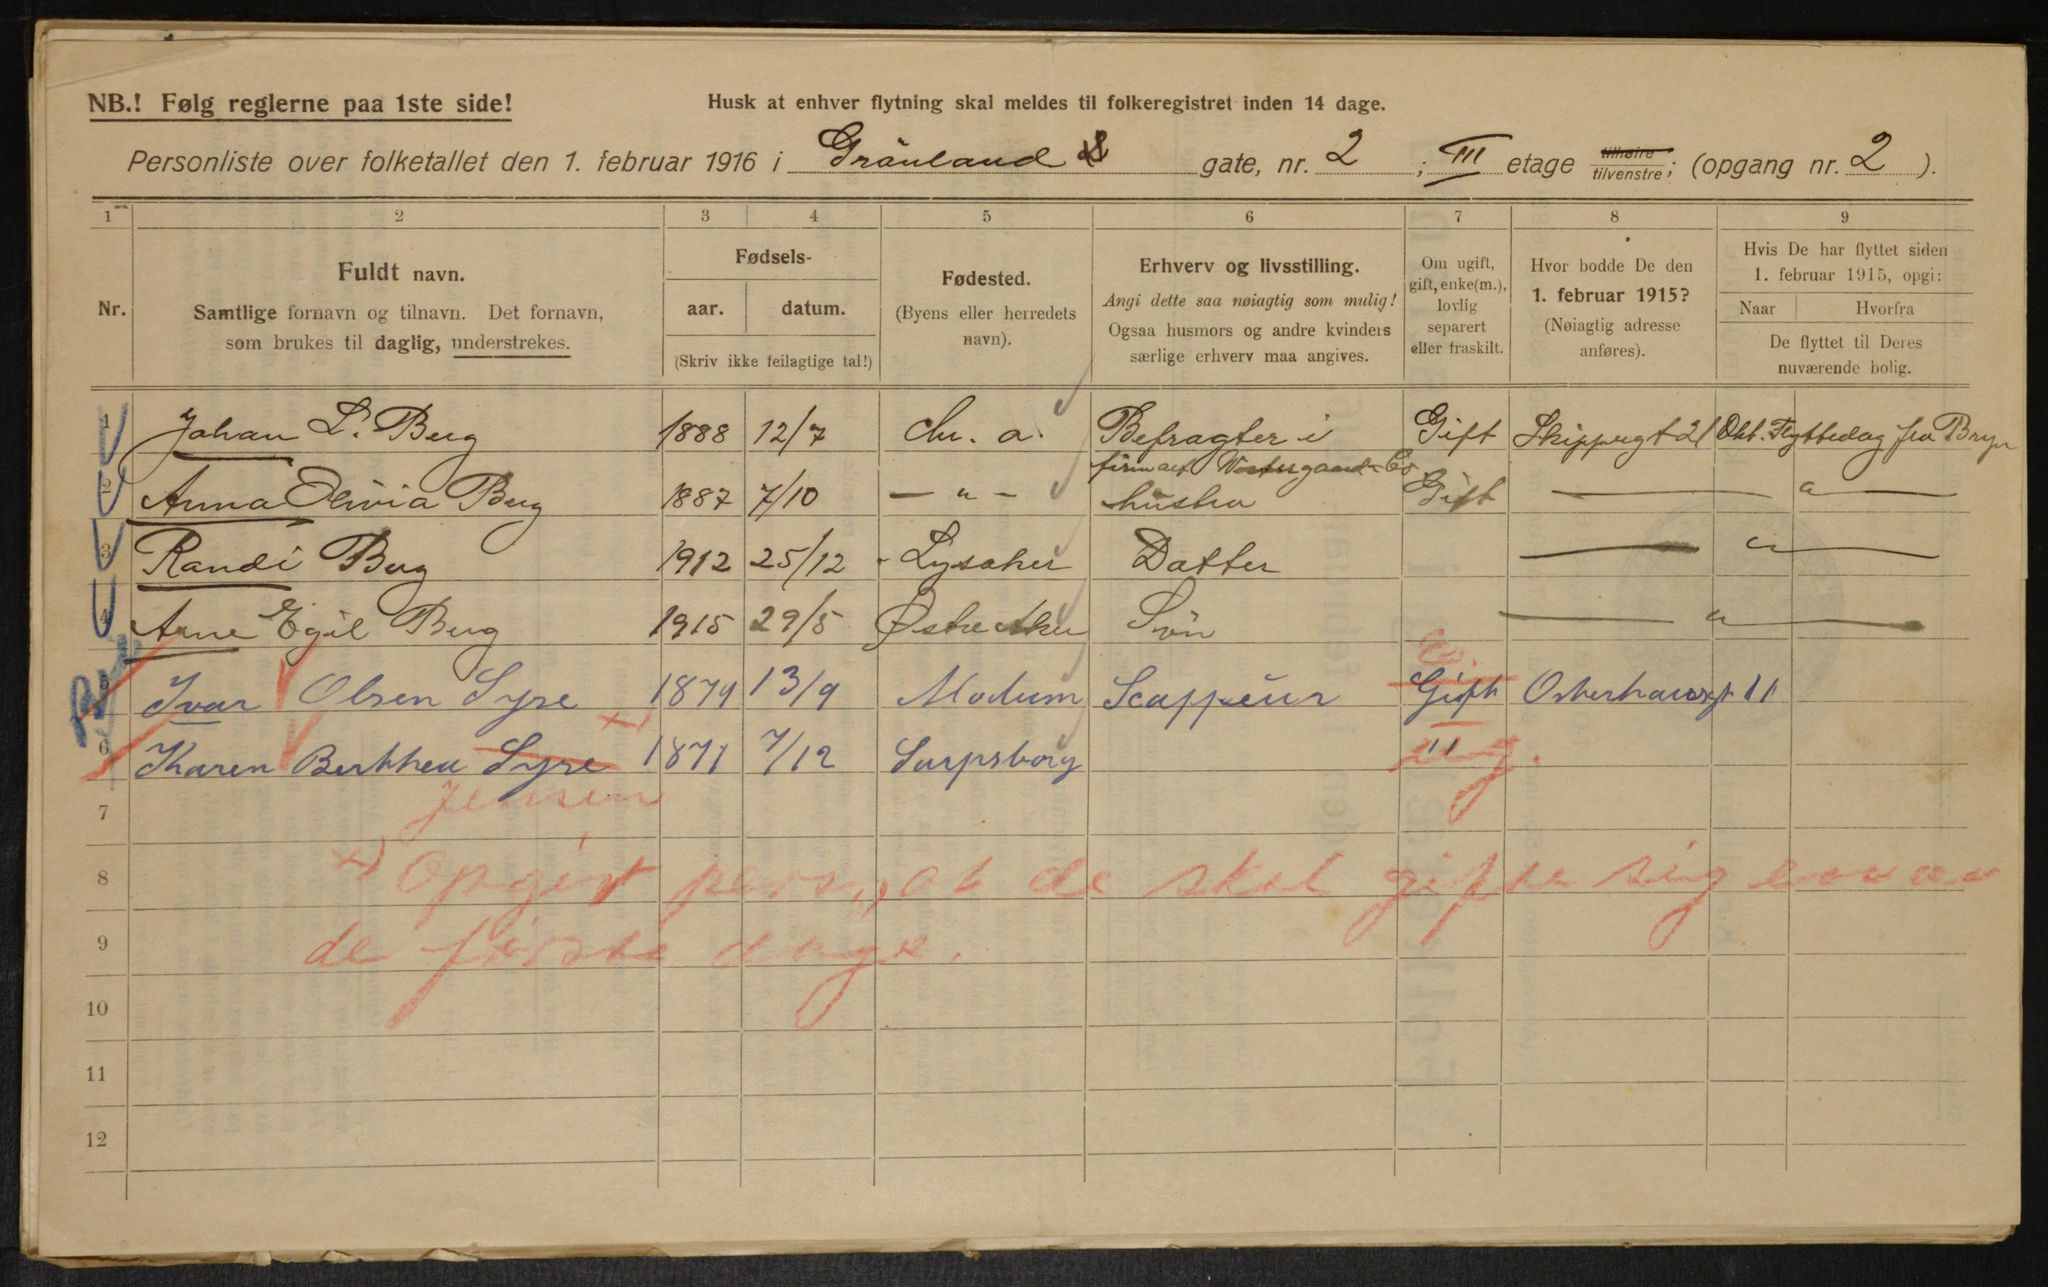 NB.! Følg reglerne paa 1ste side!
Husk at enhver flytning skal meldes til folkeregistret inden 14 dage.
Personliste over folketallet den 1. februar 1916 i Grönland gate, nr. 2 ; III etage tilhøire tilvenstre; (opgang nr. 2 ).
1 2 3 4 5 6 7 8 9
Nr.
Fuldt navn.
Samtlige fornavn og tilnavn. Det fornavn,
som brukes til daglig, understrekes.
Fødsels-
aar. datum.
(Skriv ikke feilagtige tal!)
Fødested.
(Byens eller herredets
navn).
Erhverv og livsstilling.
Angi dette saa nøiagtig som mulig!
Ogsaa husmors og andre kvinders
særlige erhverv maa angives.
Om ugift,
gift, enke(m.),
lovlig
separert
eller fraskilt.
Hvor bodde De den
1. februar 1915?
(Nøiagtig adresse
anføres).
Hvis De har flyttet siden
1. februar 1915, opgi:
Naar Hvorfra
De flyttet til Deres
nuværende bolig.
1 Johan L. Berg 1888 12/7 Chr. a. Befragter i Gift Skippergt 21 Okt. Flyttedag fra Bryn
firmaet
2 Anna Olivia Berg 1887 7/10 — " — hustru Gift — " —
3 Randi Berg 1912 25/12 Lysaker Datter — " —
4 Arne Egil Berg 1915 29/5 Østre Aker Sön — " —
5 Ivar Olsen Syre 1879 13/9 Modum Scappeur Gift Osterhausgt 11
6 Karen Berthea Syre x) 1871 7/12 Sarpsborg " ug.
7 Jensen
8 x) Opgir pers., at de skal gifte sig en av
9 de første dage.
10
11
12